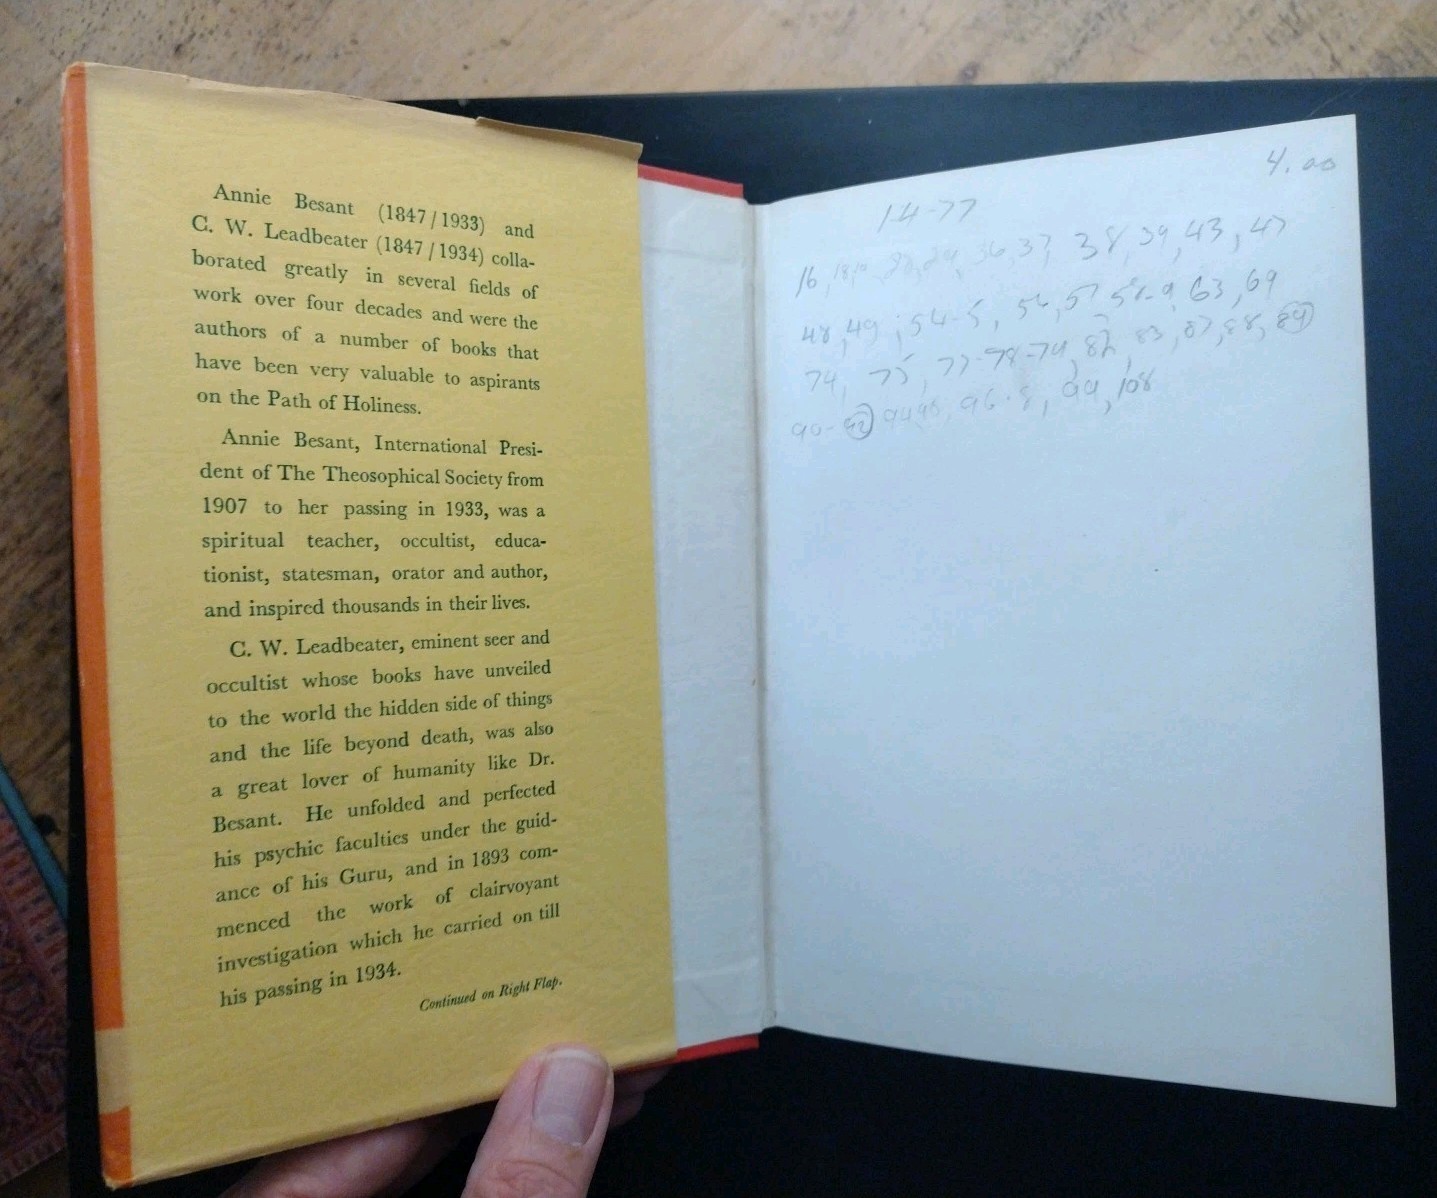 Annie Besant (1847/1933) and
C. W. Leadbeater (1847/1934) colla-
borated greatly in several fields of
work over four decades and were the
authors of a number of books that
have been very valuable to aspirants
on the Path of Holiness.
Annie Besant, International Presi-
dent of The Theosophical Society from
1907 to her passing in 1933, was a
spiritual teacher, occultist, educa-
tionist, statesman, orator and author,
and inspired thousands in their lives.
C. W. Leadbeater, eminent seer and
occultist whose books have unveiled
to the world the hidden side of things
and the life beyond death, was also
a great lover of humanity like Dr.
Besant. He unfolded and perfected
his psychic faculties under the guid-
ance of his Guru, and in 1893 com-
menced the work of clairvoyant
investigation which he carried on till
his passing in 1934.
Continued on Right Flap.
4.00
14-77
16, 36, 37, 38, 39, 43, 47
48, 49, 54-5, 56, 57, 58-9, 63, 69
74, 75, 77-78-79, 82, 83, 87, 88, 89
90-92, 96-8, 99, 108